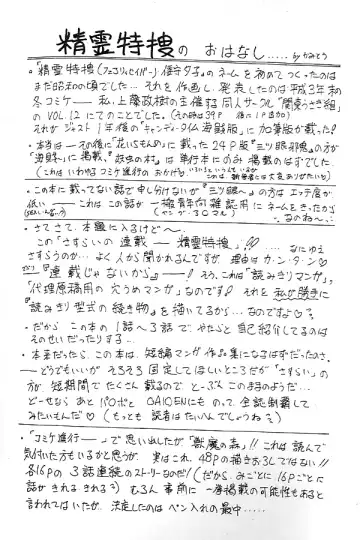 精霊特捜の おはなし.....by かみとう
・『精霊特捜(フェアリィセイバー)保守夕子』のネームを初めてつくったのは
まだ昭和の頃でした… それを作画し、発表したのは平成3年末の
冬コミケ── 私、上藤政樹の主催する同人サークル『関東うさぎ組』
のVOL.12にてのことでした。
それがジャスト1年後のキャンディータイム海賊版に加筆版が載った!
・本当は──その後に『花いちもんめ』に載った24P版『三ツ眼邪鬼』の方が
「海賊」に掲載。『妖虫の村』は単行本にのみ掲載のはずでした。
・この本に載ってない話で申し分けないが『三ツ眼~』の方はエッチ度が
低い── これはこの話が一推青年向雑誌用にネームをきったから
なのねー。
・さてさて、本題に入るけど~、
この「さすらいの連載 ─ 精霊特捜」!! ……なにゆえ
さすらうのか… よく人から聞かれるんですが 理由はカ・ン・タ・ン♡
『連載じゃないから』──! そう、これは『読みきりマンガ』、
『代理原稿用の穴うめマンガ』なのです! それを私が勝手に
『読みきり型式の続き物』を描いてるから…なのですよ♡
・だから この本の1話~3話で、やたらと自己紹介してるのは
そのせいだったりする…
・本来だったら、この本は、短編マンガ作品集になるはずだったのさ。
──どうでもいいが そろそろ固定してほしいところだが「さすらい」の
方が、短期間でたくさん載るので と~ぶんこのままのようだ…
ど~せなら あと パロポと DAICENにも のって、全誌制覇して
みたいもんだ♡ (もっとも 読者はたいへんでしょうね?)
・「コミケ進行──」で思い出したが『獣魔の森』!! これは読んで
気付いた方もいるかと思うが、実はこれ、48Pの描きおろしではない!!
各16Pの3話連続のストーリーなのだ! (だから、みごとに16Pごとに
話がきれるきれる?) むろん 事前に一挙掲載の可能性もあると
言われてはいたが、決定したのはペン入れの最中……